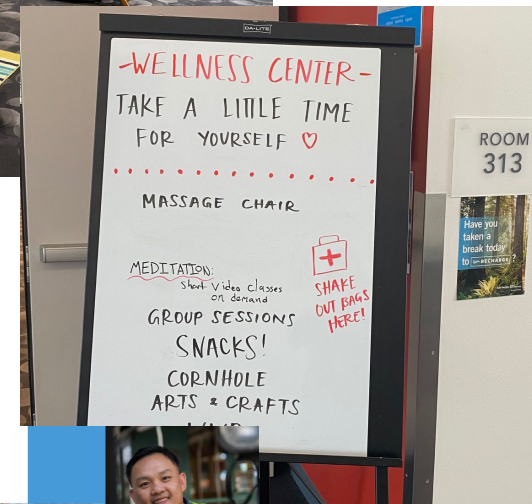 DA-LITE
-WELLNESS CENTER-
TAKE A LITTLE TIME
FOR YOURSELF ♡
MASSAGE CHAIR
MEDITATION:
Short Video Classes
on demand
GROUP SESSIONS
SNACKS!
CORNHOLE
ARTS & CRAFTS
SHAKE
OUT BAGS
HERE!
ROOM
313
Have you
taken a
break today
to RECHARGE?